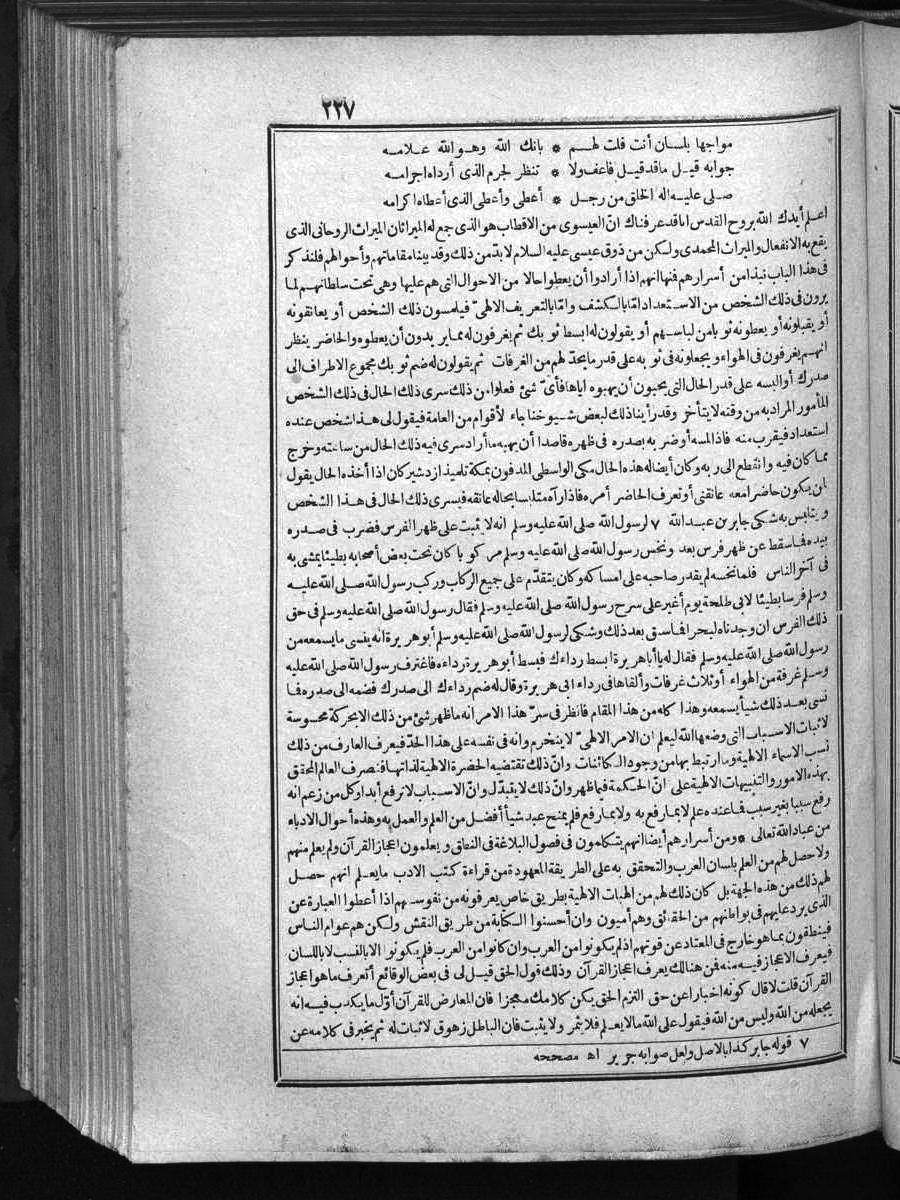 ٢٢٧
مواجها بلسان أنت قلت لهم * بانك الله وهو الله علامه
جوابه قيل ما قد قيل فاعف ولا * تنظر لجرم الذى أرداه اجرامه
صلى عليه اله الخلق من رجل * أعطى وأعطى الذى أعطاه اكرامه
اعلم أيدك الله بروح القدس اناقد عرفناك انّ العيسوى من الاقطاب هو الذى جمع له الميراثان الميراث الروحانى الذى
يقع به الانفعال والميراث المحمدى ولكن من ذوق عيسى عليه السلام لا بدّ من ذلك وقد بينا مقاماتهم وأحوالهم فلنذكر
فى هذا الباب نبذا من أسرارهم فنها انهم اذا أرادوا أن يعطوا حالا من الاحوال التى هم عليها وهى تحت سلطانهم لما
يرون فى ذلك الشخص من الاستعداد امّا بالكشف وامّا بالتعريف الالهىّ فيلمسون ذلك الشخص أو يعانقونه
أو يقبلونه أو يعطونه ثوبا من لباسهم أو يقولون له ابسط ثوبك ثم يغرفون له مما يريدون أن يعطوه والحاضر ينظر
انهم يغرفون فى الهواء ويجعلونه فى ثوبه على قدر ما يحدّ لهم من الغرفات ثم يقولون له ضم ثوبك مجموع الاطراف الى
صدرك أو البسه على قدر الحال التى يحبون أن يهبوه اياها فأىّ شئ فعلوا من ذلك سرى ذلك الحال فى ذلك الشخص
المأمور المراد به من وقته لا يتأخر وقد رأينا ذلك لبعض شيوخنا جاء لأقوام من العامة فيقول لى هذا شخص عنده
استعداد فيقرب منه فاذا لمسه أو ضربه بصدره فى ظهره قاصدا أن يهبه ما أراد سرى فيه ذلك الحال من ساعته وخرج
مما كان فيه وانقطع الى ربه وكان أيضا له هذه الحال مكى الواسطى المدفون بمكة تلميذ ازدشير كان اذا أخذه الحال يقول
لمن يكون حاضرا معه عانقنى أو تعرف الحاضر أمره فاذا رآه متلبسا بحاله عانقه فيسرى ذلك الحال فى هذا الشخص
ويتلبس به شكى جابر بن عبد الله ٧ لرسول الله صلى الله عليه وسلم انه لا يثبت على ظهر الفرس فضرب فى صدره
بيده فما سقط عن ظهر فرس بعد ونخس رسول الله صلى الله عليه وسلم مركوبا كان تحت بعض أصحابه بطيئا يمشى به
فى آخر الناس فلما نخسه لم يقدر صاحبه على امساكه وكان يتقدّم على جميع الركاب وركب رسول الله صلى الله عليه
وسلم فرسا بطيئا لابى طلحة يوم أغير على سرح رسول الله صلى الله عليه وسلم فقال رسول الله صلى الله عليه وسلم فى حق
ذلك الفرس ان وجدناه لبحرا فما سبق بعد ذلك وشكى لرسول الله صلى الله عليه وسلم أبو هريرة انه ينسى ما يسمعه من
رسول الله صلى الله عليه وسلم فقال له يا أبا هريرة ابسط رداءك فبسط أبو هريرة رداءه فاغترف رسول الله صلى الله عليه
وسلم غرفة من الهواء أو ثلاث غرفات وألقاها فى رداء ابى هريرة وقال له ضم رداءك الى صدرك فضمه الى صدره فما
نسى بعد ذلك شيأ يسمعه وهذا كله من هذا المقام فانظر فى سرّ هذا الامر انه ما ظهر شئ من ذلك الا بحركة محسوسة
لاثبات الاسباب التى وضعها الله ليعلم ان الامر الالهىّ لا ينخرم وانه فى نفسه على هذا الحدّ فيعرف العارف من ذلك
نسب الاسماء الالهية وما ارتبط بها من وجود الكائنات وانّ ذلك تقتضيه الحضرة الالهية لذاتها فتصرف العالم المحقق
بهذه الامور والتنبيهات الالهية على انّ الحكمة فيما ظهر وانّ ذلك لا يتبدّل وانّ الاسباب لا ترفع أبدا وكل من زعم انه
رفع سببا بغير سبب فما عنده علم لا بما رفع به ولا بما رفع فلم يمنح عبد شيأ أفضل من العلم والعمل به وهذه أحوال الادباء
من عباد الله تعالى * ومن أسرارهم أيضا انهم يتكلمون فى فصول البلاغة فى النطق ويعلمون اعجاز القرآن ولم يعلم منهم
ولا حصل لهم من العلم بلسان العرب والتحقق به على الطريقة المعهودة من قراءة كتب الادب ما يعلم انهم حصل
لهم ذلك من هذه الجهة بل كان ذلك لهم من الهبات الالهية بطريق خاص يعرفونه من نفوسهم اذا أعطوا العبارة عن
الذى يرد عليهم فى بواطنهم من الحقائق وهم أميون وان أحسنوا الكتابة من طريق النقش ولكن هم عوام الناس
فينطقون بما هو خارج فى المعتاد عن قوتهم اذ لم يكونوا من العرب وان كانوا من العرب فلم يكونوا الا بالنسب لا باللسان
فيعرف الاعجاز فيه منه فن هنالك يعرف اعجاز القرآن وذلك قول الحق قيل لى فى بعض الوقائع أتعرف ما هو اعجاز
القرآن قلت لا قال كونه اخبارا عن حق التزم الحق يكن كلامك معجزا فان المعارض للقرآن أوّل ما يكذب فيه انه
يجعله من الله وليس من الله فيقول على الله ما لا يعلم فلا يثمر ولا يثبت فان الباطل زهوق لا ثبات له ثم يخبر فى كلامه عن
٧ قوله جابر كذا بالاصل ولعل صوابه جرير اه مصححه